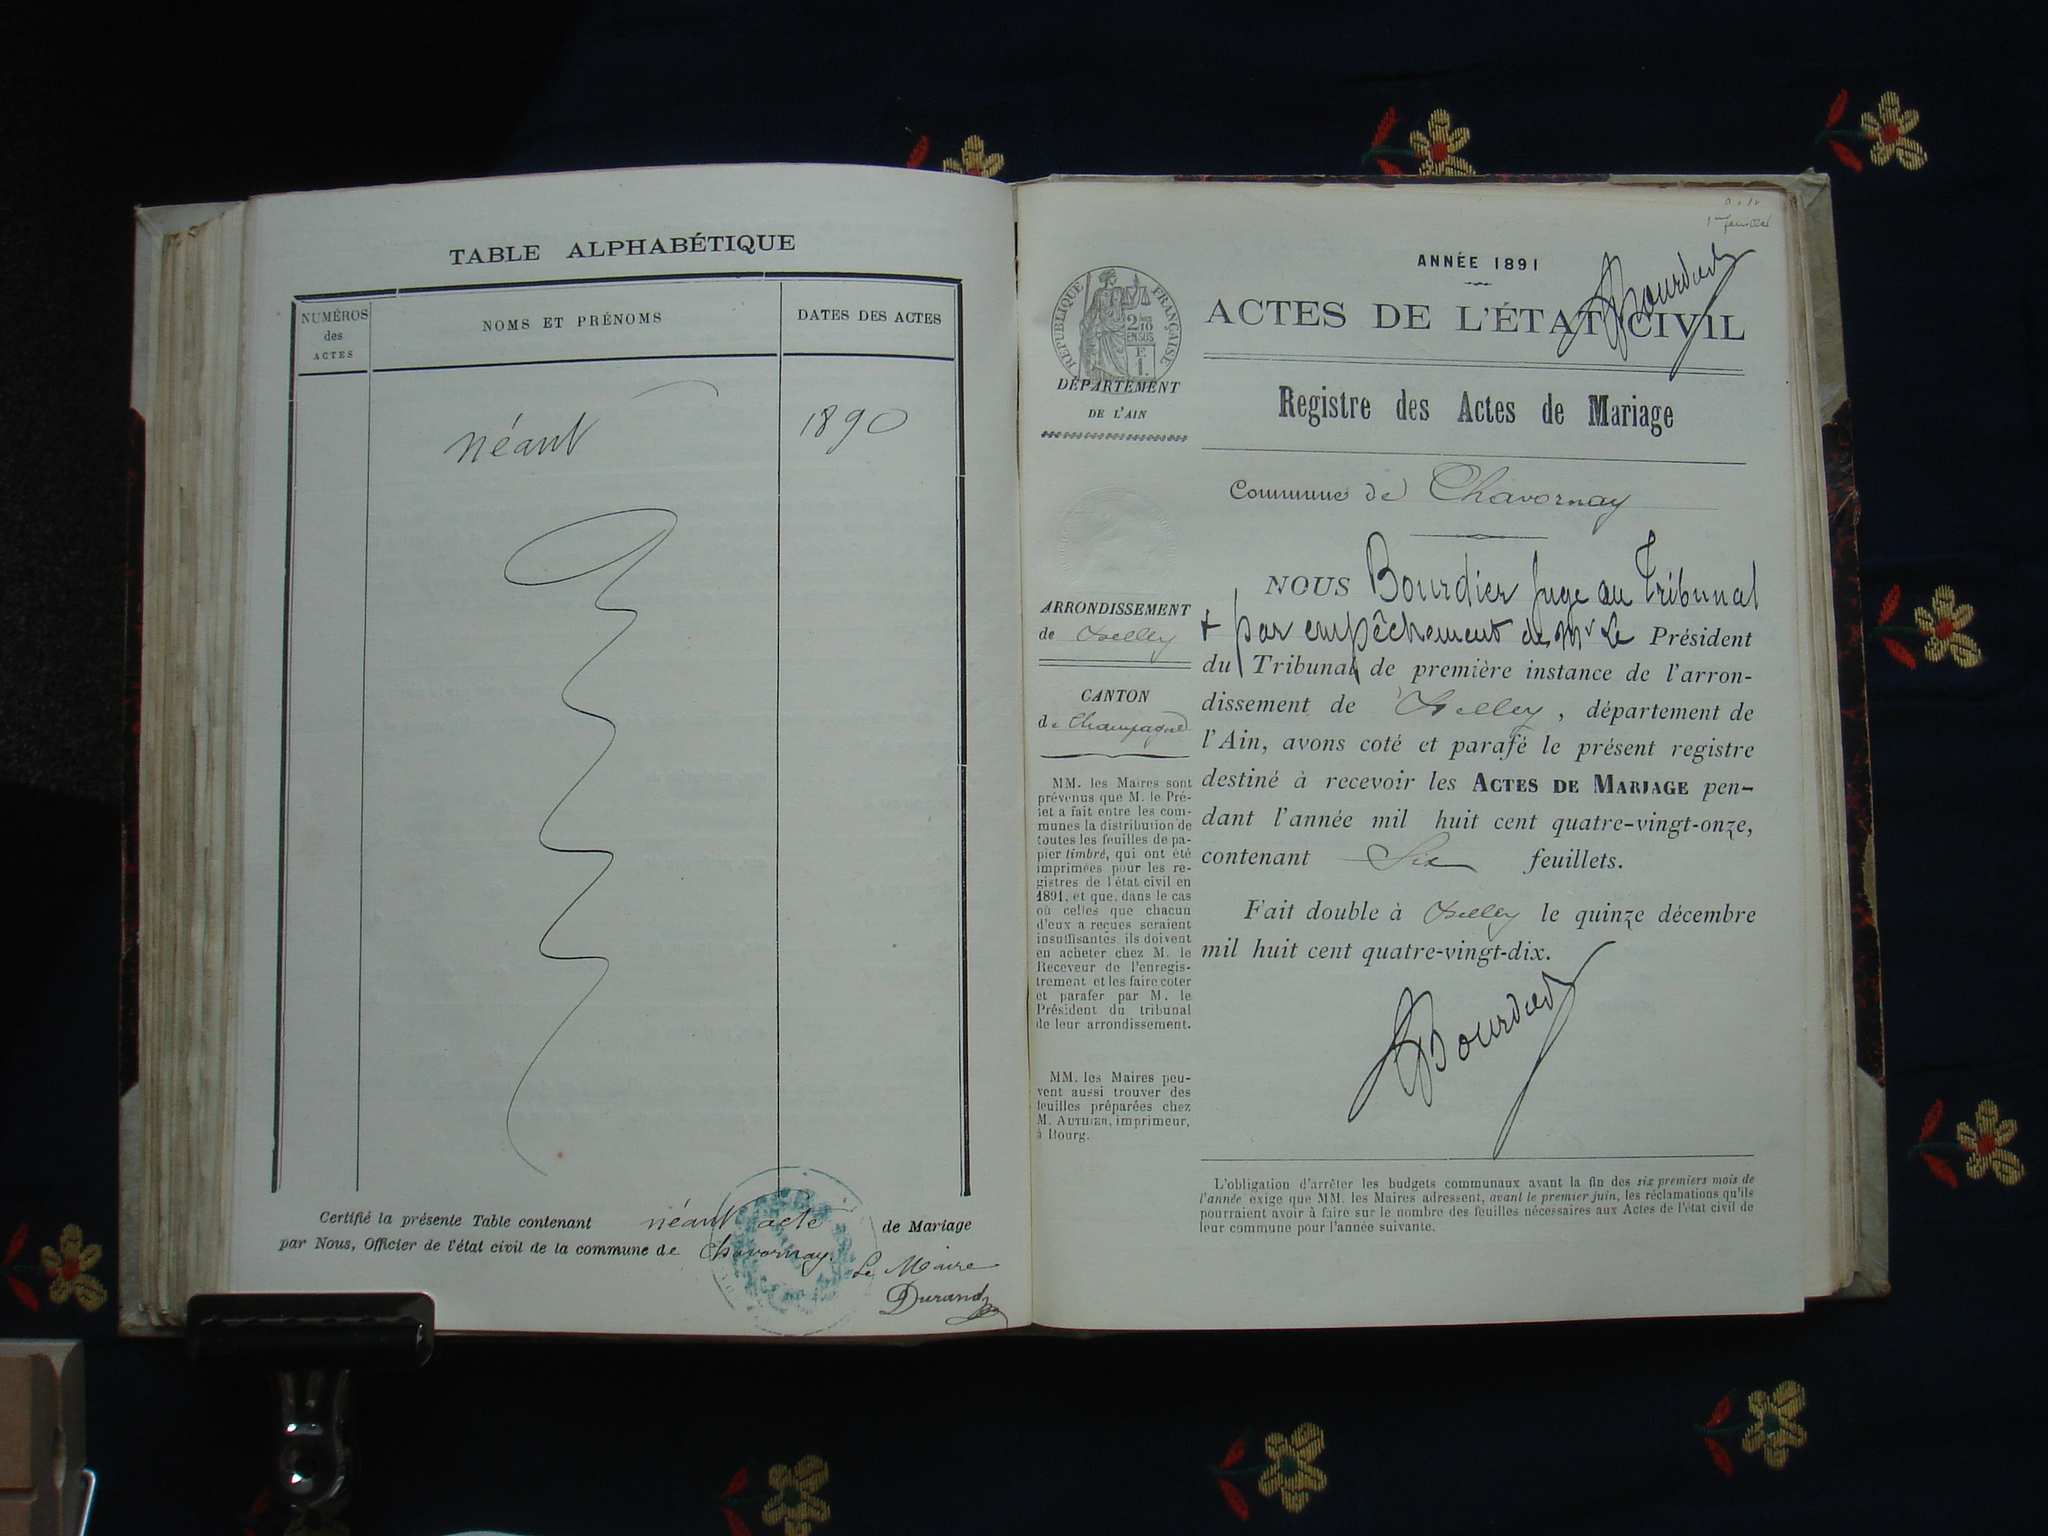 TABLE ALPHABÉTIQUE
NUMÉROS
des
ACTES
NOMS ET PRÉNOMS
DATES DES ACTES
néant
1890
Certifié la présente Table contenant néant acte de Mariage
par Nous, Officier de l'état civil de la commune de Chavornay
Le Maire
Durand
1er feuillet
ANNÉE 1891
Bourdier
RÉPUBLIQUE FRANÇAISE
2/10
EN SUS
ACTES DE L'ÉTAT CIVIL
DÉPARTEMENT
DE L'AIN
Registre des Actes de Mariage
Commune de Chavornay
ARRONDISSEMENT
de Belley
CANTON
de Champagne
MM. les Maires sont
prévenus que M. le Pré-
fet a fait entre les com-
munes la distribution de
toutes les feuilles de pa-
pier timbré, qui ont été
imprimées pour les re-
gistres de l'état civil en
1891, et que, dans le cas
où celles que chacun
d'eux a reçues seraient
insuffisantes, ils doivent
en acheter chez M. le
Receveur de l'enregis-
trement et les faire coter
et parafer par M. le
Président du tribunal
de leur arrondissement.
MM. les Maires peu-
vent aussi trouver des
feuilles préparées chez
M. AUTHIER, imprimeur,
à Bourg.
NOUS Bourdier Juge au Tribunal
+ par empêchement de Mr Le Président
du Tribunal de première instance de l'arron-
dissement de Belley, département de
l'Ain, avons coté et parafé le présent registre
destiné à recevoir les ACTES DE MARIAGE pen-
dant l'année mil huit cent quatre-vingt-onze,
contenant Six feuillets.
Fait double à Belley le quinze décembre
mil huit cent quatre-vingt-dix.
Bourdier
L'obligation d'arrêter les budgets communaux avant la fin des six premiers mois de
l'année exige que MM. les Maires adressent, avant le premier juin, les réclamations qu'ils
pourraient avoir à faire sur le nombre des feuilles nécessaires aux Actes de l'état civil de
leur commune pour l'année suivante.